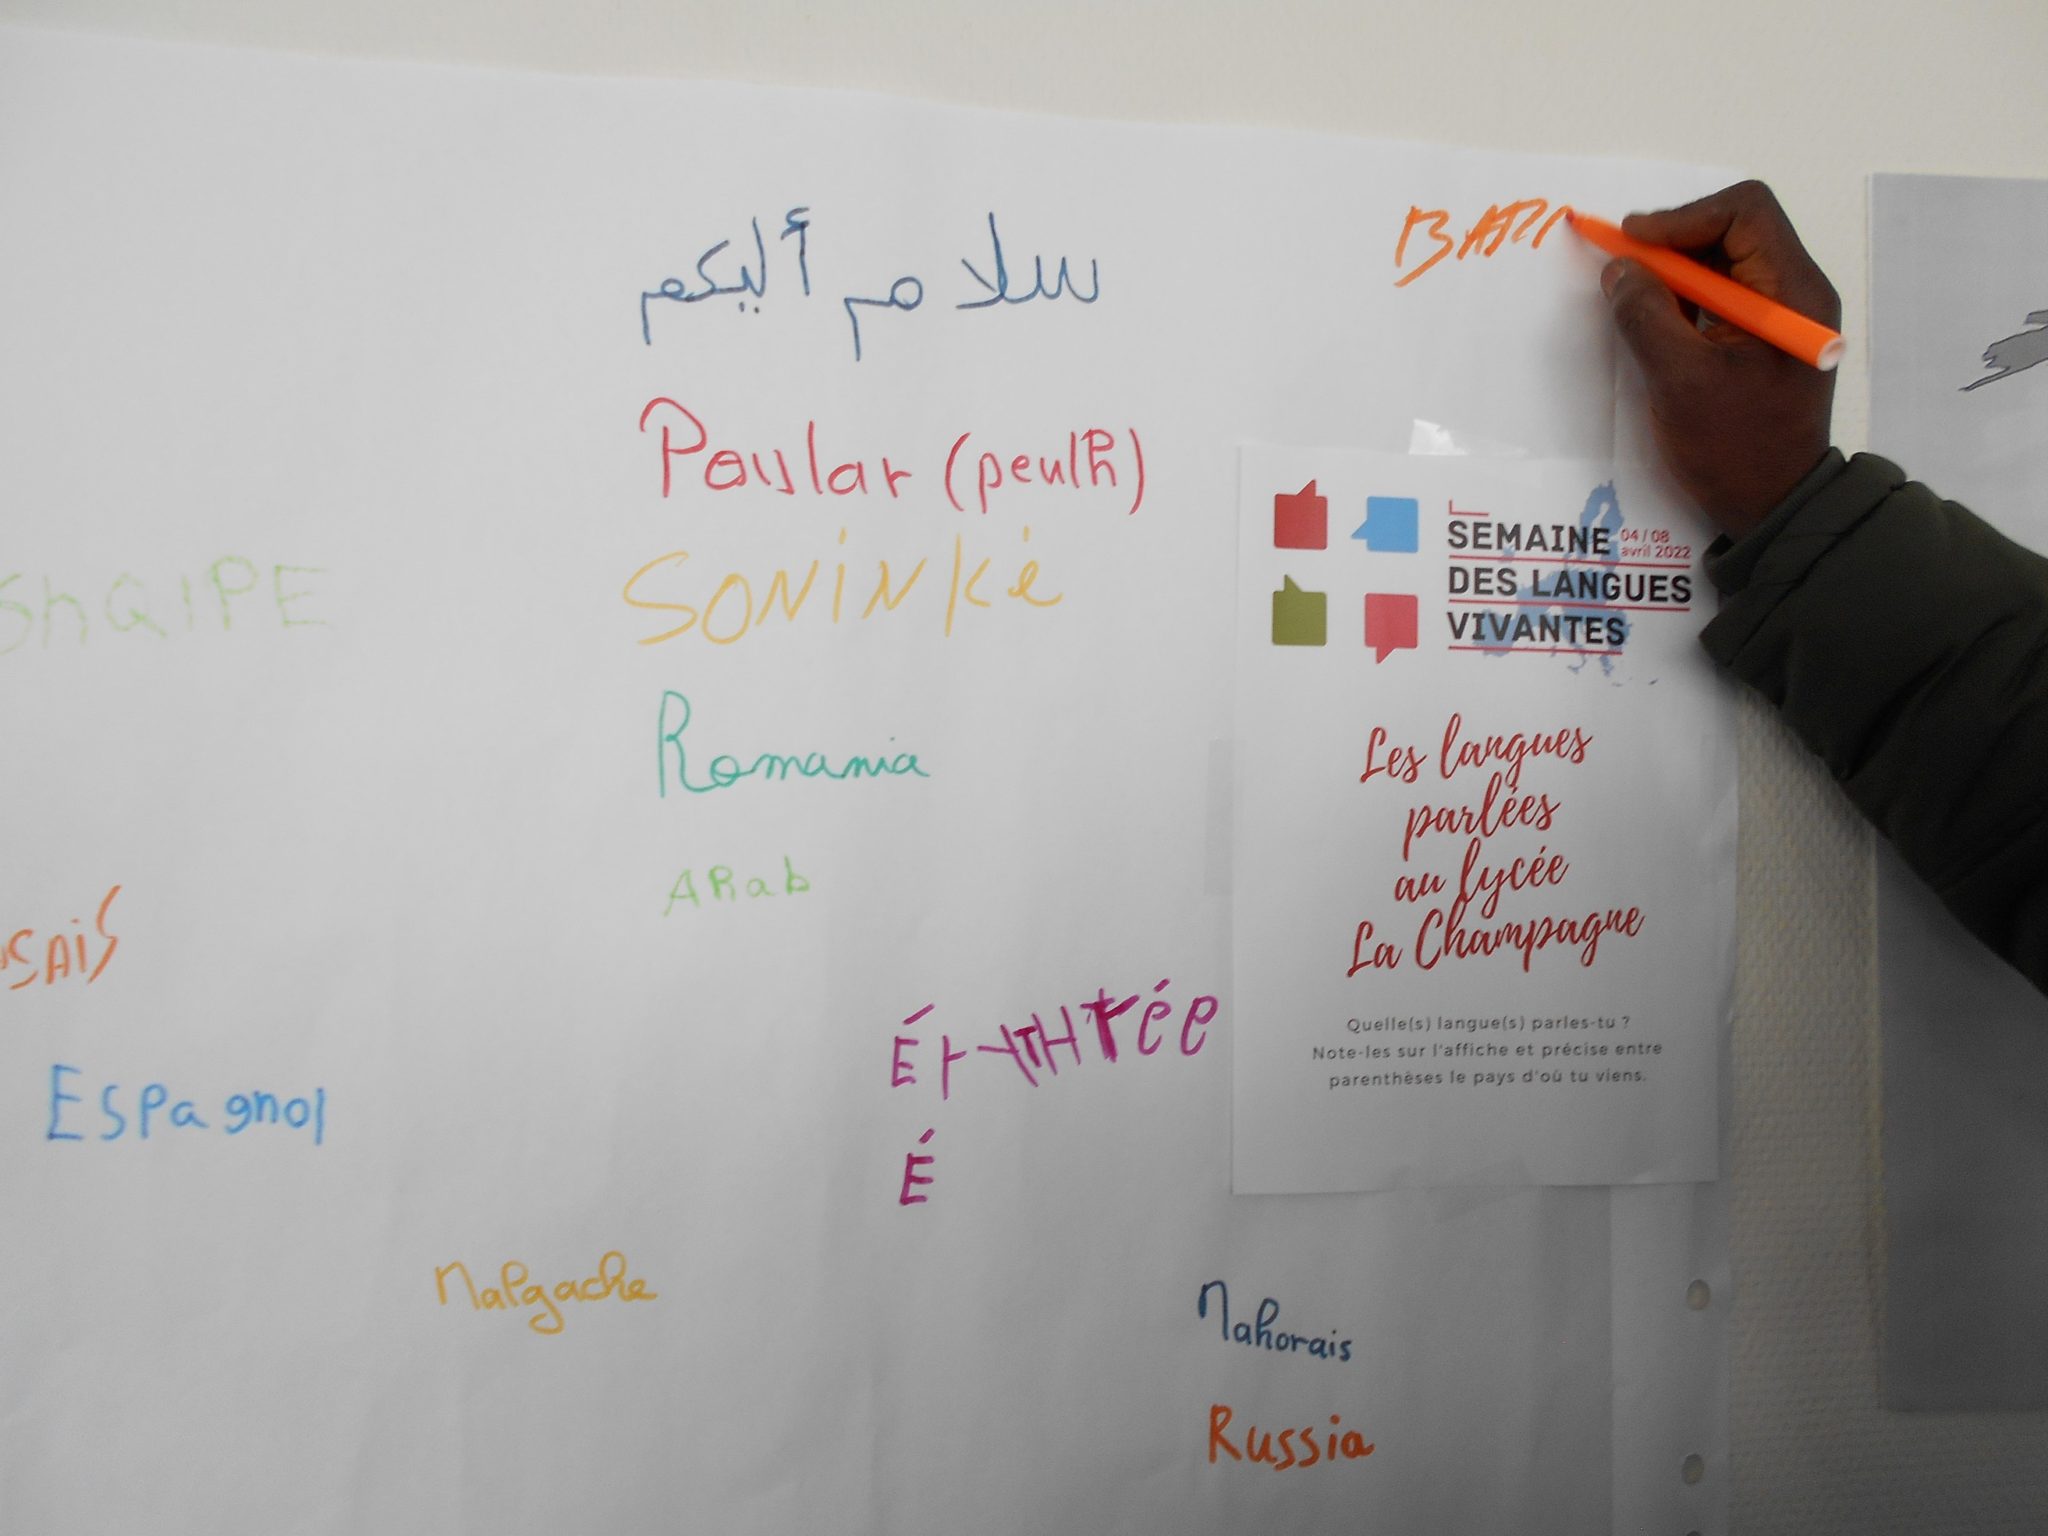 سلام أليكم
Poular (peulh)
SONINKé
Romania
ARab
ShQIPE
Espagnol
É
Malgache
Mahorais
Russia
SEMAINE
04 / 08
avril 2022
DES LANGUES
VIVANTES
Les langues
parlées
au lycée
La Champagne
Quelle(s) langue(s) parles-tu ?
Note-les sur l'affiche et précise entre
parenthèses le pays d'où tu viens.